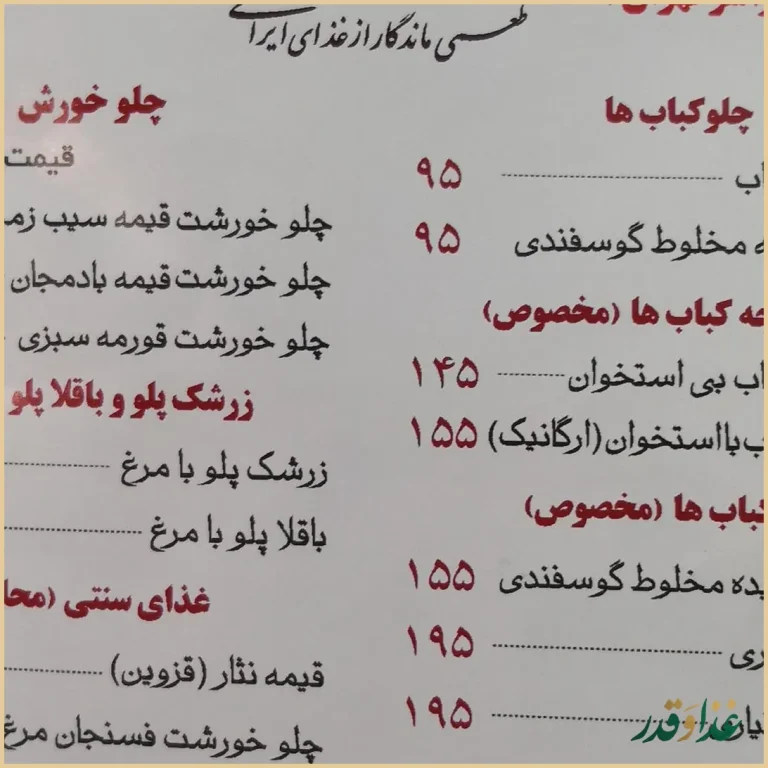 طعمی ماندگار از غذای ایرانی
چلوکباب ها
۹۵
مخلوط گوسفندی ۹۵
کباب ها (مخصوص)
بی استخوان ۱۴۵
با استخوان (ارگانیک) ۱۵۵
کباب ها (مخصوص)
مخلوط گوسفندی ۱۵۵
۱۹۵
۱۹۵
چلو خورش
قیمت
چلو خورشت قیمه سیب
چلو خورشت قیمه بادمجان
چلو خورشت قورمه سبزی
زرشک پلو و باقلا پلو
زرشک پلو با مرغ
باقلا پلو با مرغ
غذای سنتی
قیمه نثار (قزوین)
چلو خورشت فسنجان مرغ
غذا و قدر